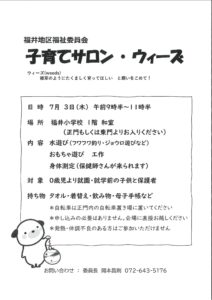 福井地区福祉委員会
子育てサロン・ウィーズ
ウィーズ(weeds)
雑草のようにたくましく育ってほしい と願いをこめて!
日 時 7月 3日(木) 午前9時半~11時半
場 所 福井小学校 1階 和室
(正門もしくは東門よりお入りください)
内 容 水遊び(フワフワ釣り・ジョウロ遊びなど)
おもちゃ遊び 工作
身体測定(保健師さんが来られます)
対 象 0歳児より就園・就学前の子供と保護者
持ち物 タオル・着替え・飲み物・母子手帳など
*自転車は正門内の自転車置き場に置いてください
*申し込みの必要はありません。会場に直接お越しください
*発熱・体調不良のある方はご参加いただけません
お問い合わせ : 委員長 岡本昌則 072-643-5176